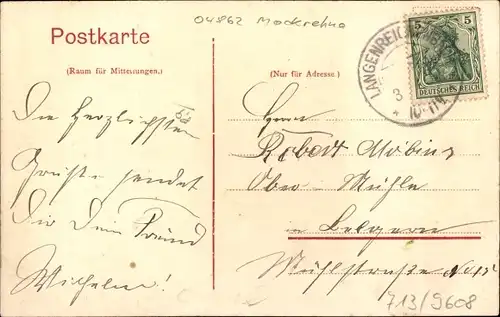 04862 Mockrehna
Postkarte
(Raum für Mitteilungen.)
(Nur für Adresse.)
5 5
DEUTSCHES REICH
LANGENREICH
3
* 10-11
Die Herzlichsten
Grüße sendet
Dir Dein Freund
Wilhelm!
Herrn
Robert Möbius
Ober Mühle
in Belgern
Mühlstraße No 15
713/9608